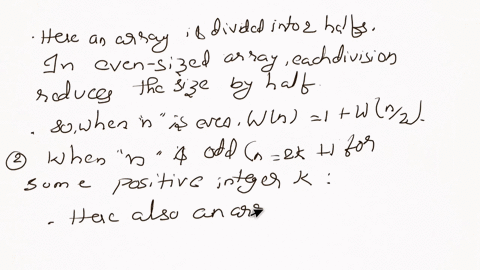 . Here an array is divided into 2 halfs.
In even-sized array, each division
reduces the size by half.
. So, when "n" is even, W(n) = 1 + W(n/2).
② When "n" is odd (n = 2k + 1 for
some positive integer k :
. Here also an arr